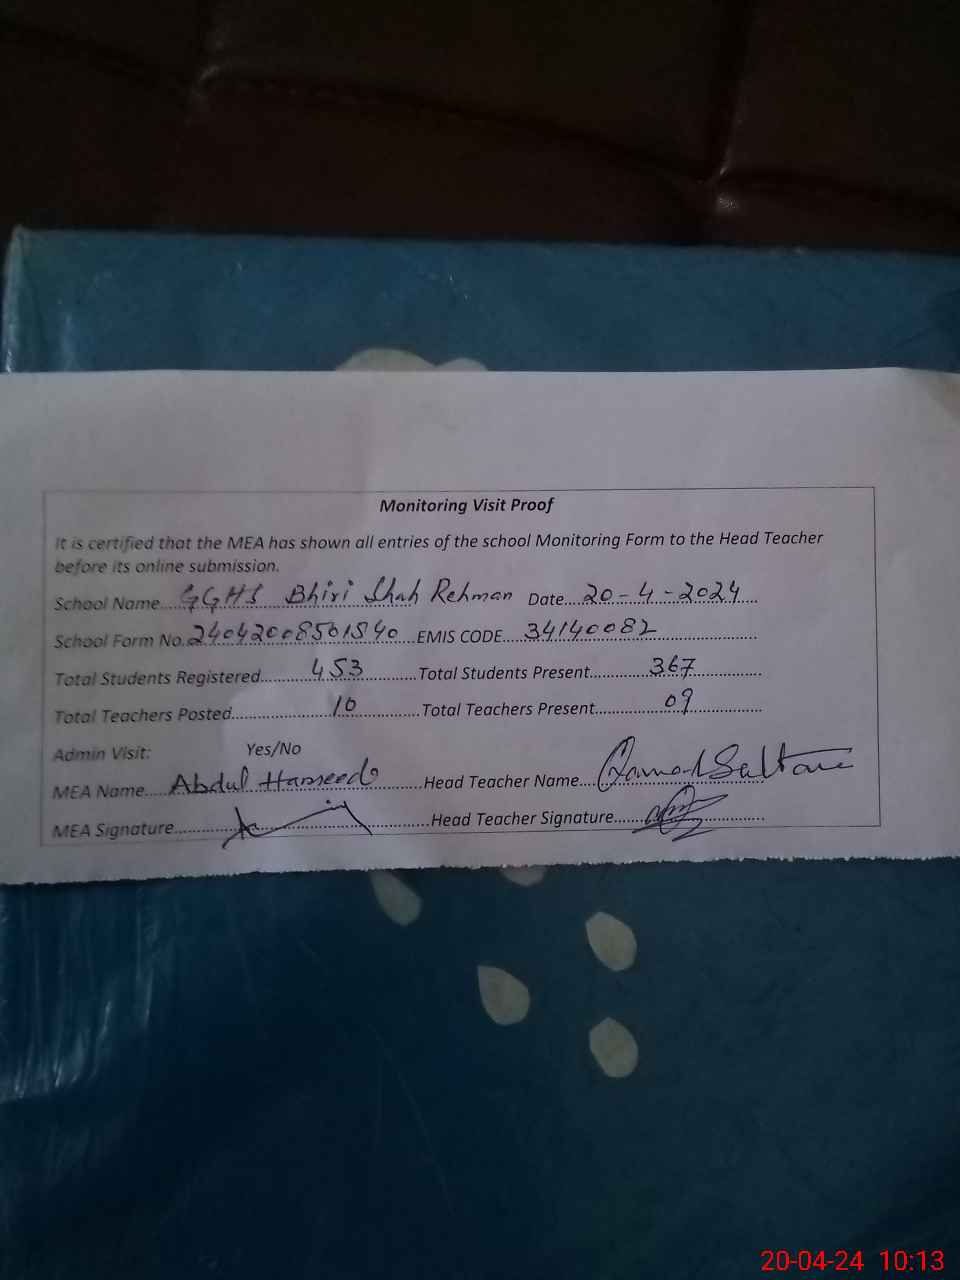 Monitoring Visit Proof
It is certified that the MEA has shown all entries of the school Monitoring Form to the Head Teacher
before its online submission.
School Name....GGHS Bhiri Shah Rehman Date....20-4-2024
School Form No.24042008501540 EMIS CODE....34140082
Total Students Registered....453 Total Students Present....367
Total Teachers Posted....10 Total Teachers Present....09
Admin Visit: Yes/No
MEA Name....Abdul Hameed Head Teacher Name....Sultana
MEA Signature.... Head Teacher Signature....
20-04-24 10:13